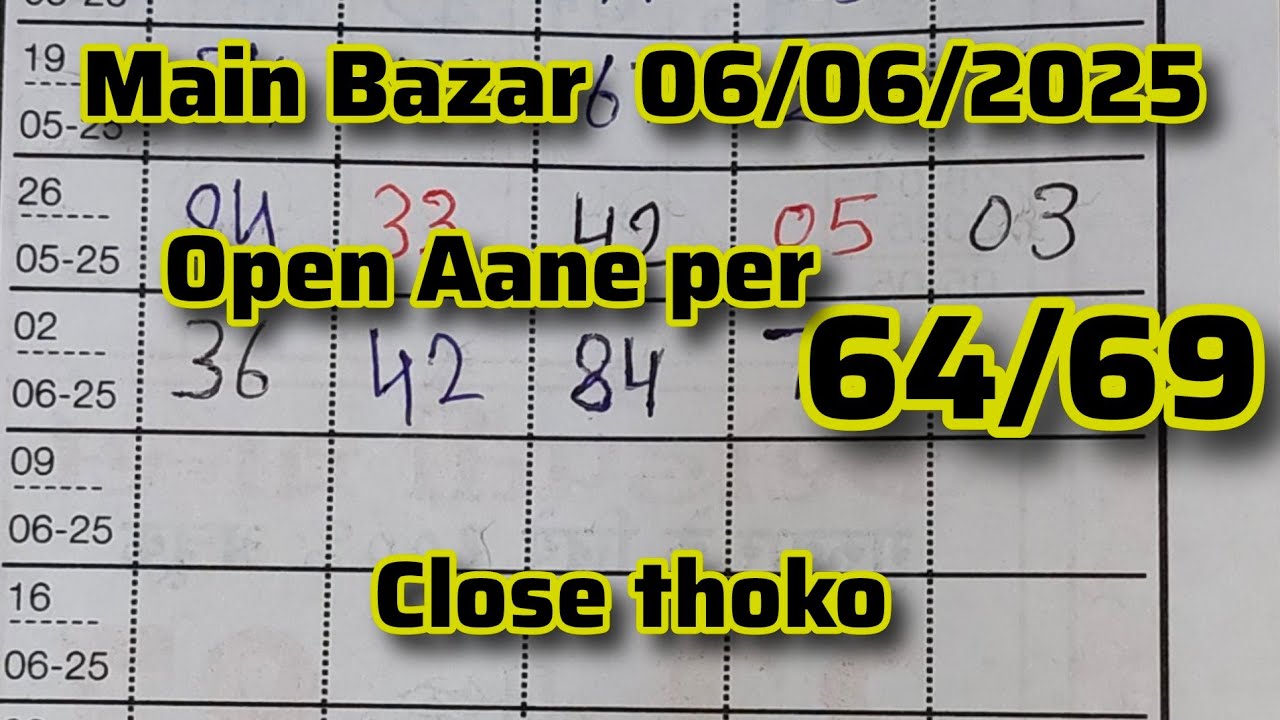 19
Main Bazar 06/06/2025
05-25
26
04 33 42 05 03
05-25
Open Aane per
02
64/69
36 42 84
06-25
09
06-25
Close thoko
16
06-25